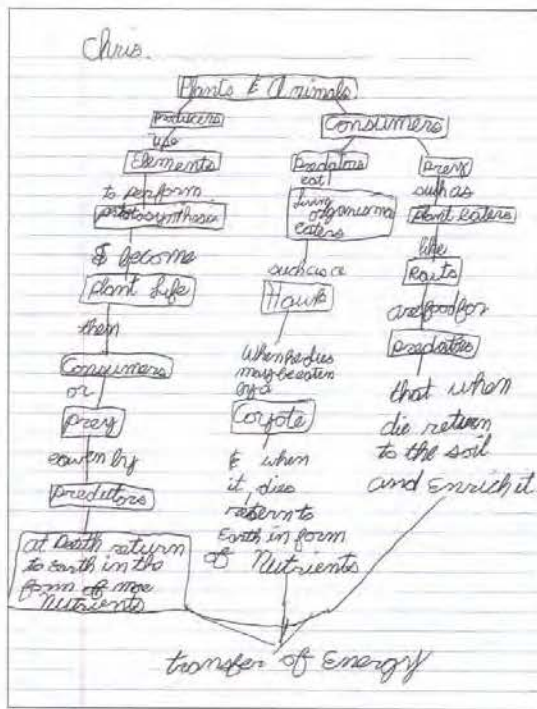 Chris.
Plants & Animals
Producers
use
Elements
to perform
photosynthesis
& become
Plant Life
then
Consumers
or
prey
eaten by
predictors
at Death return
to Earth in the
form of more
Nutrients
Consumers
Predators
eat
living
organisms
eaters
such as a
Hawk
When he dies
may be eaten
by a
Coyote
& when
it dies
return to
Earth in form
of Nutrients
prey
such as
plant eaters
like
are food for
predators
that when
die return
to the soil
and Enrich it
transfer of Energy